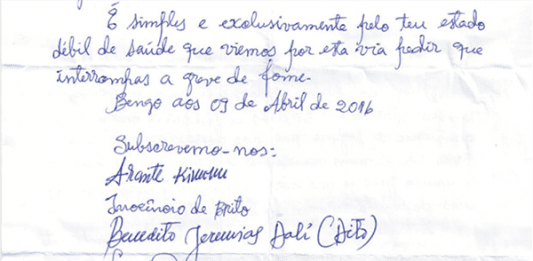 É simples e exclusivamente pelo teu estado
débil de saúde que viemos por esta via pedir que
interrompas a greve de fome.
Bengo aos 09 de Abril de 2016
Subscrevemo-nos:
Arante Kimuvu
Inocêncio de Brito
Benedito Jeremias Dalí (Dito)